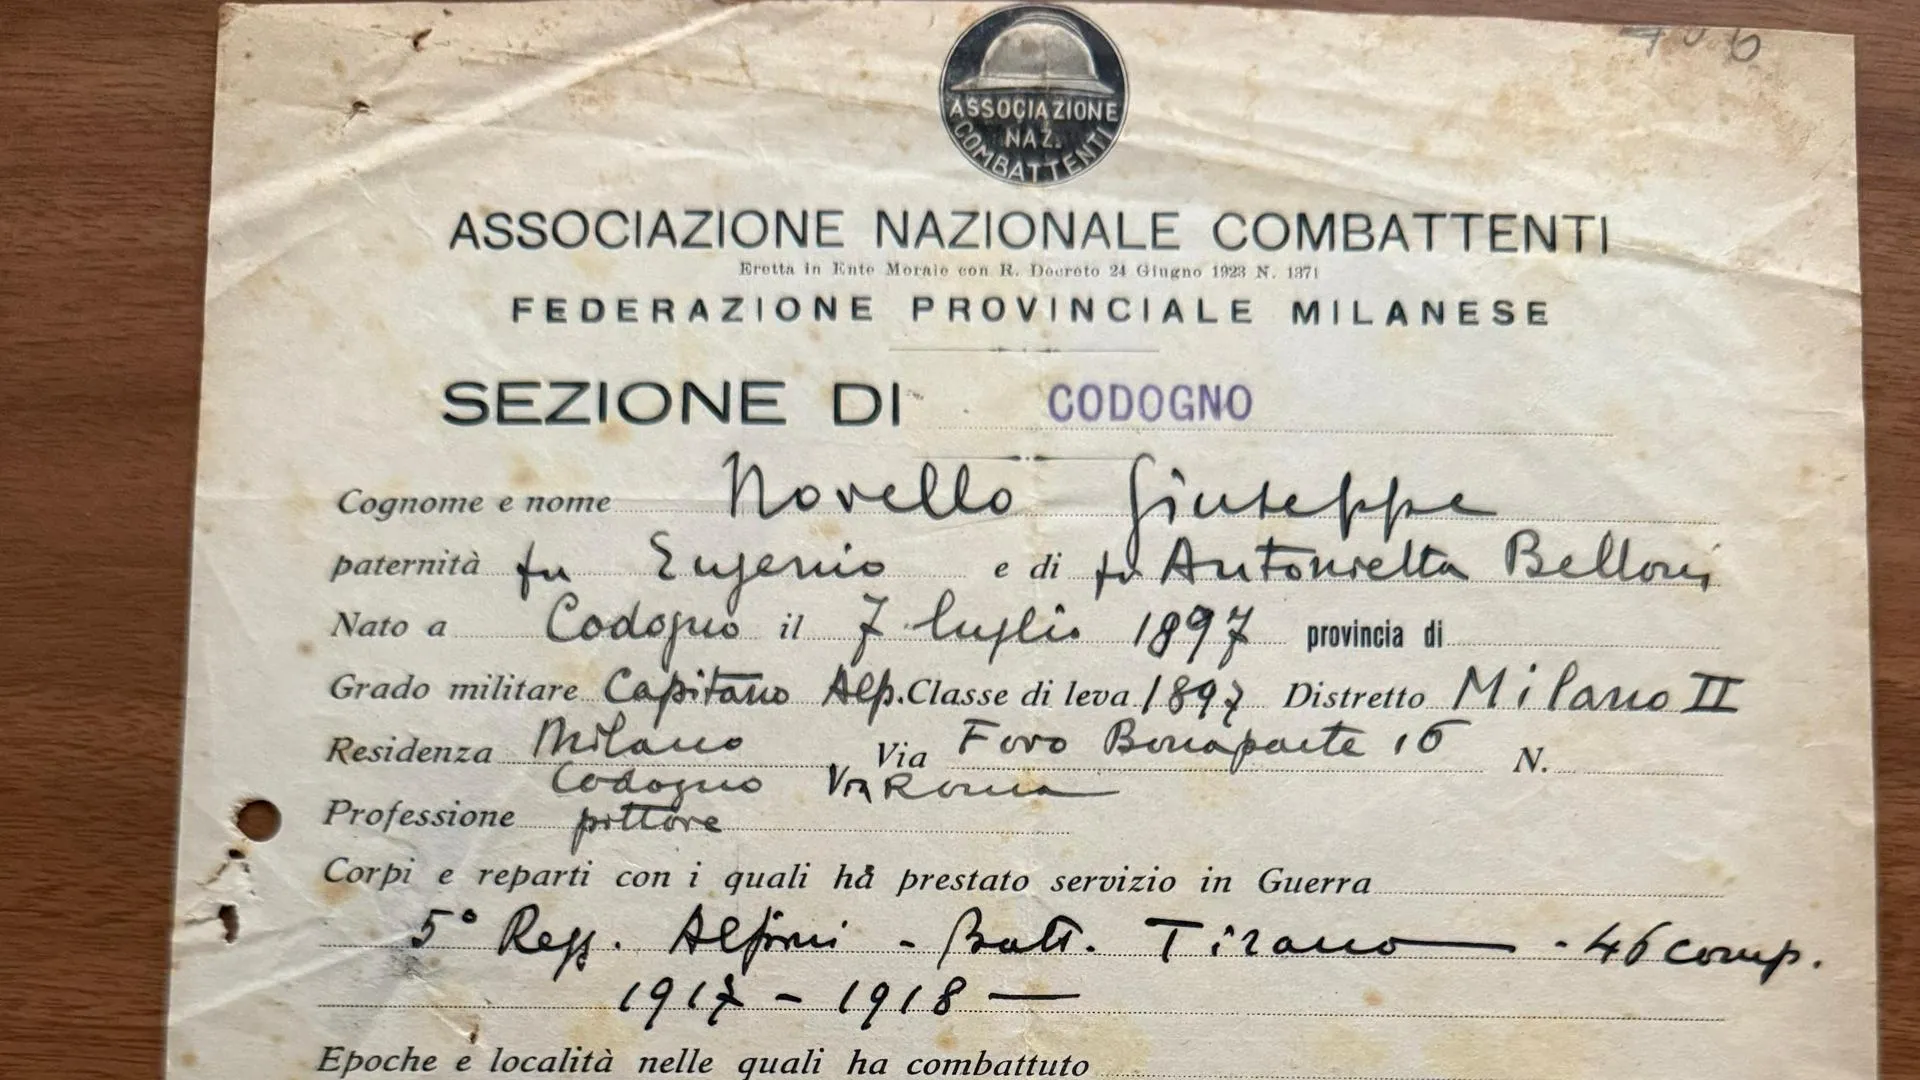 706
ASSOCIAZIONE
NAZ.
COMBATTENTI
ASSOCIAZIONE NAZIONALE COMBATTENTI
Eretta in Ente Morale con R. Decreto 24 Giugno 1923 N. 1371
FEDERAZIONE PROVINCIALE MILANESE
SEZIONE DI CODOGNO
Cognome e nome Novello Giuseppe
paternità fu Eugenio e di fu Antonietta Belloni
Nato a Codogno il 7 luglio 1897 provincia di
Grado militare Capitano Alp. Classe di leva 1897 Distretto Milano II
Residenza Milano Via Foro Bonaparte 16 N.
Codogno Via Roma
Professione pittore
Corpi e reparti con i quali ha prestato servizio in Guerra
5° Regg. Alpini - Batt. Tirano - 46 comp.
1917 - 1918
Epoche e località nelle quali ha combattuto